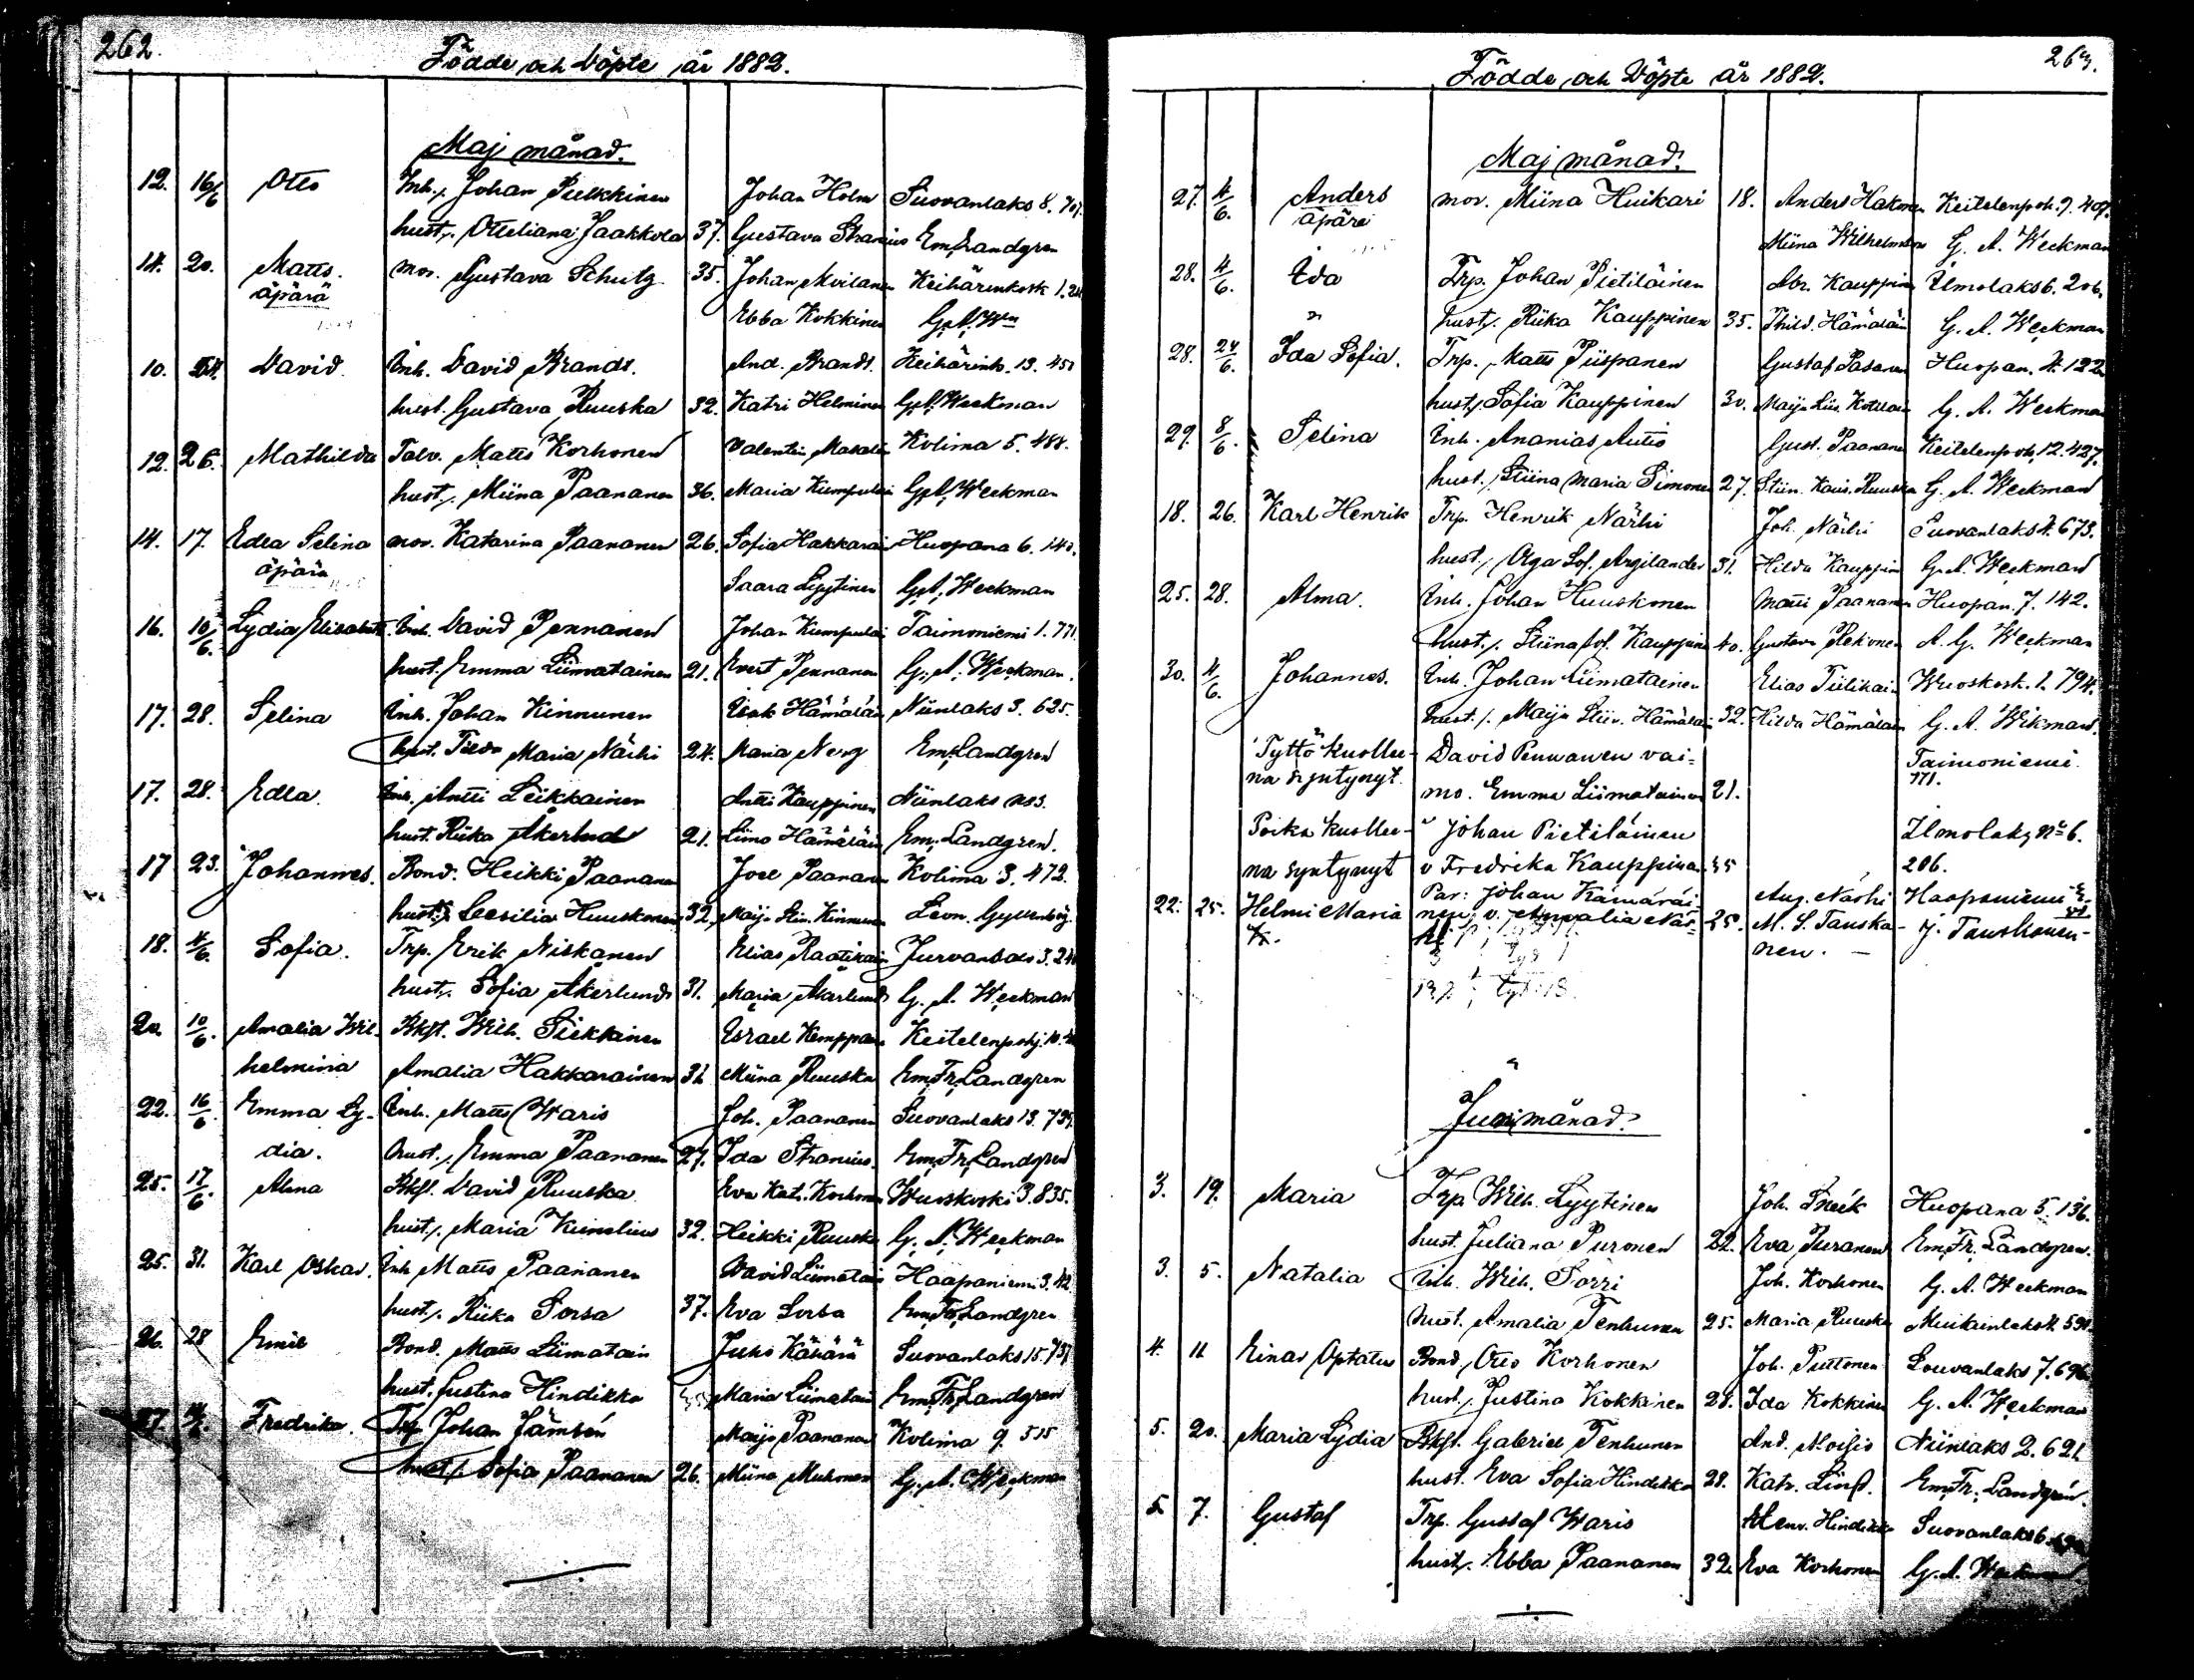 262.
Födde och Döpte år 1882.
Maj månad.
12. 16/6 Otto Inh. Johan Pulkkinen Johan Holm Suovanlaks 8. 707.
hust. Otteliana Jaakkola 37. Gustava Stranius Em. Landgren
14. 20. Matts. mor. Gustava Schulz 35. Johan Moilanen Keihärinkosk 1.
äpärä Ebba Kokkinen G. A. Wn
10. David Inh. David Brandt. And. Brandt. Keihärink. 13. 450
hust. Gustava Ruuska 32. Katri Helminen G. A. Weckman
12. 26. Mathilda Talv. Matts Korhonen Valentin Makalai Kolima 5. 488.
hust. Miina Paananen 36. Maria Kumpulai G. A. Weckman
14. 17. Edla Selina mor. Katarina Paananen 26. Sofia Hakkarai Huopana 6. 140.
äpärä Saara Lyytinen G. A. Weckman
16. 10/6. Lydia Elisabeth Inh. David Pennanen Johan Kumpulai Taimoniemi 1. 771.
hust. Emma Liimatainen 21. Evert Pennanen G. A. Weckman.
17. 28. Selina Inh. Johan Kinnunen Isak Hämäläin Niinlaks 3. 625.
hust. Tilda Maria Närhi 24. Maria Nerg Em. Landgren
17. 28. Edla Inh. Antti Leikkainen Antti Kauppinen Niinlaks
hust. Riika Åkerlund 21. Liimo Hämäläin Em. Landgren.
17 23. Johannes. Bond. Heikki Paananen Joel Paananen Kolima 3. 472.
hust. Cecilia Huuskonen 32. Maija Stin. Kinnunen Leon.
18. 4/6. Sofia. Trp. Erik Niskanen Elias Raatikain Jurvansalo 3.
hust. Sofia Åkerlund 31. Maria Åkerlund G. A. Weckman
20. 10/6. Amalia Wil- Bkst. Wilh. Siekkinen Israel Kemppain Keitelenpohj. 10.
helmina Amalia Hakkarainen 31 Miina Ruuska Em. Fr. Landgren
22. 16/6 Emma Ly- Inh. Matts Waris Joh. Paananen Suovanlaks 13. 739.
dia. hust. Emma Paananen 27. Ida Stranius. Em. Fr. Landgren
25. 17/6. Alma Bkst. David Ruuska Eva Kat. Korhonen Wuoskoski 3. 835.
hust. Maria Kumlin 32. Heikki Ruuska G. A. Weckman
25. 31. Karl Oskar. Inh Matts Paananen David Liimatain Haapaniemi 3. 42
hust. Riika Sorsa 37. Eva Sorsa Em. Fr. Landgren
26. 28 Emil Bond. Matts Liimatain Juho Kähärä Suovanlaks 15. 737
hust. Justina Hindikka Maria Liimatain Em. Fr. Landgren
27. Fredrika. Trp. Johan Jämsén Maija Paananen Kolima 9. 515
hust. Sofia Paananen 26. Miina Muhonen G. A. Weckman
263.
Födde och Döpte år 1882.
Maj månad.
27. 4/6. Anders mor. Miina Huikari 18. Anders Hakonen Keitelenpoh. 9. 409.
äpärä Miina Wilhelmson G. A. Weckman
28. 4/6. Ida Trp. Johan Pietiläinen Abr. Kauppinen Ilmolaks 6. 206.
hust. Riika Kauppinen 35. Thild. Hämäläin G. A. Weckman
28. 24/6. Ida Sofia. Trp. Matts Piispanen Gustaf Pasanen Huopan. 4. 122
hust. Sofia Kauppinen 30. Maija Liis. Kotilain G. A. Weckman
29. 8/6. Selina Inh. Ananias Autio Gust. Paananen Keitelenpoh. 12. 427.
hust. Stiina Maria Simonen 27. Stiin. Kais. Ruuska G. A. Weckman
18. 26. Karl Henrik Trp. Henrik Närhi Joh. Närhi Suovanlaks 4. 673.
hust. Olga Sof. Argillander 31. Hilda Kauppin G. A. Weckman
25. 28. Alma. Inh. Johan Huuskonen Matti Paananen Huopan. 7. 142.
hust. Stiina Sof. Kauppine 40. Gustava Rekonen A. G. Weckman
30. 4/6. Johannes. Inh. Johan Liimatainen Elias Tiilikai Wuoskosk. 1. 794.
hust. Maija Stiiv. Hämäläi 32. Hilda Hämäläin G. A. Wikman.
Tyttö kuollee- David Pennanen vai- Taimoniemi
na syntynyt. mo. Emma Liimatainen 21. 771.
Poika kuollee- Johan Pietiläinen Ilmolaks No 6.
na syntynyt v Fredrika Kauppinen 35 206.
22. 25. Helmi Maria Par: Johan Kämäräi- Aug. Närhi Haapaniemi
nen, v. Amalia När- 25. M. S. Tauska- J. Tauskanen
nen. -
Juni månad.
3. 19. Maria Trp. Wilh. Lyytinen Joh. Huopana 5. 136.
hust. Juliana Puronen 22. Eva Puranen Em. Fr. Landgren.
3. 5. Natalia Inh. Wilh. Sorri Joh. Korhonen G. A. Weckman
hust. Amalia Tenhunen 25. Maria Ruuska Muikunlaks 4.
4. 11 Einar Optatus Bond. Otto Korhonen Joh. Puttonen Louvanlaks 7. 696
hust. Justina Kokkinen 28. Ida Kokkinen G. A. Weckman
5. 20. Maria Lydia Bkst. Gabriel Tenhunen And. Moisio Niinlaks 2. 621
hust. Eva Sofia Hindikka 28. Katr. Em. Fr. Landgrén.
5 7. Gustaf Trp. Gustaf Waris Henr. Hindikka Suovanlaks 6.
hust. Ebba Paananen 39. Eva Korhonen G. A. Weckman